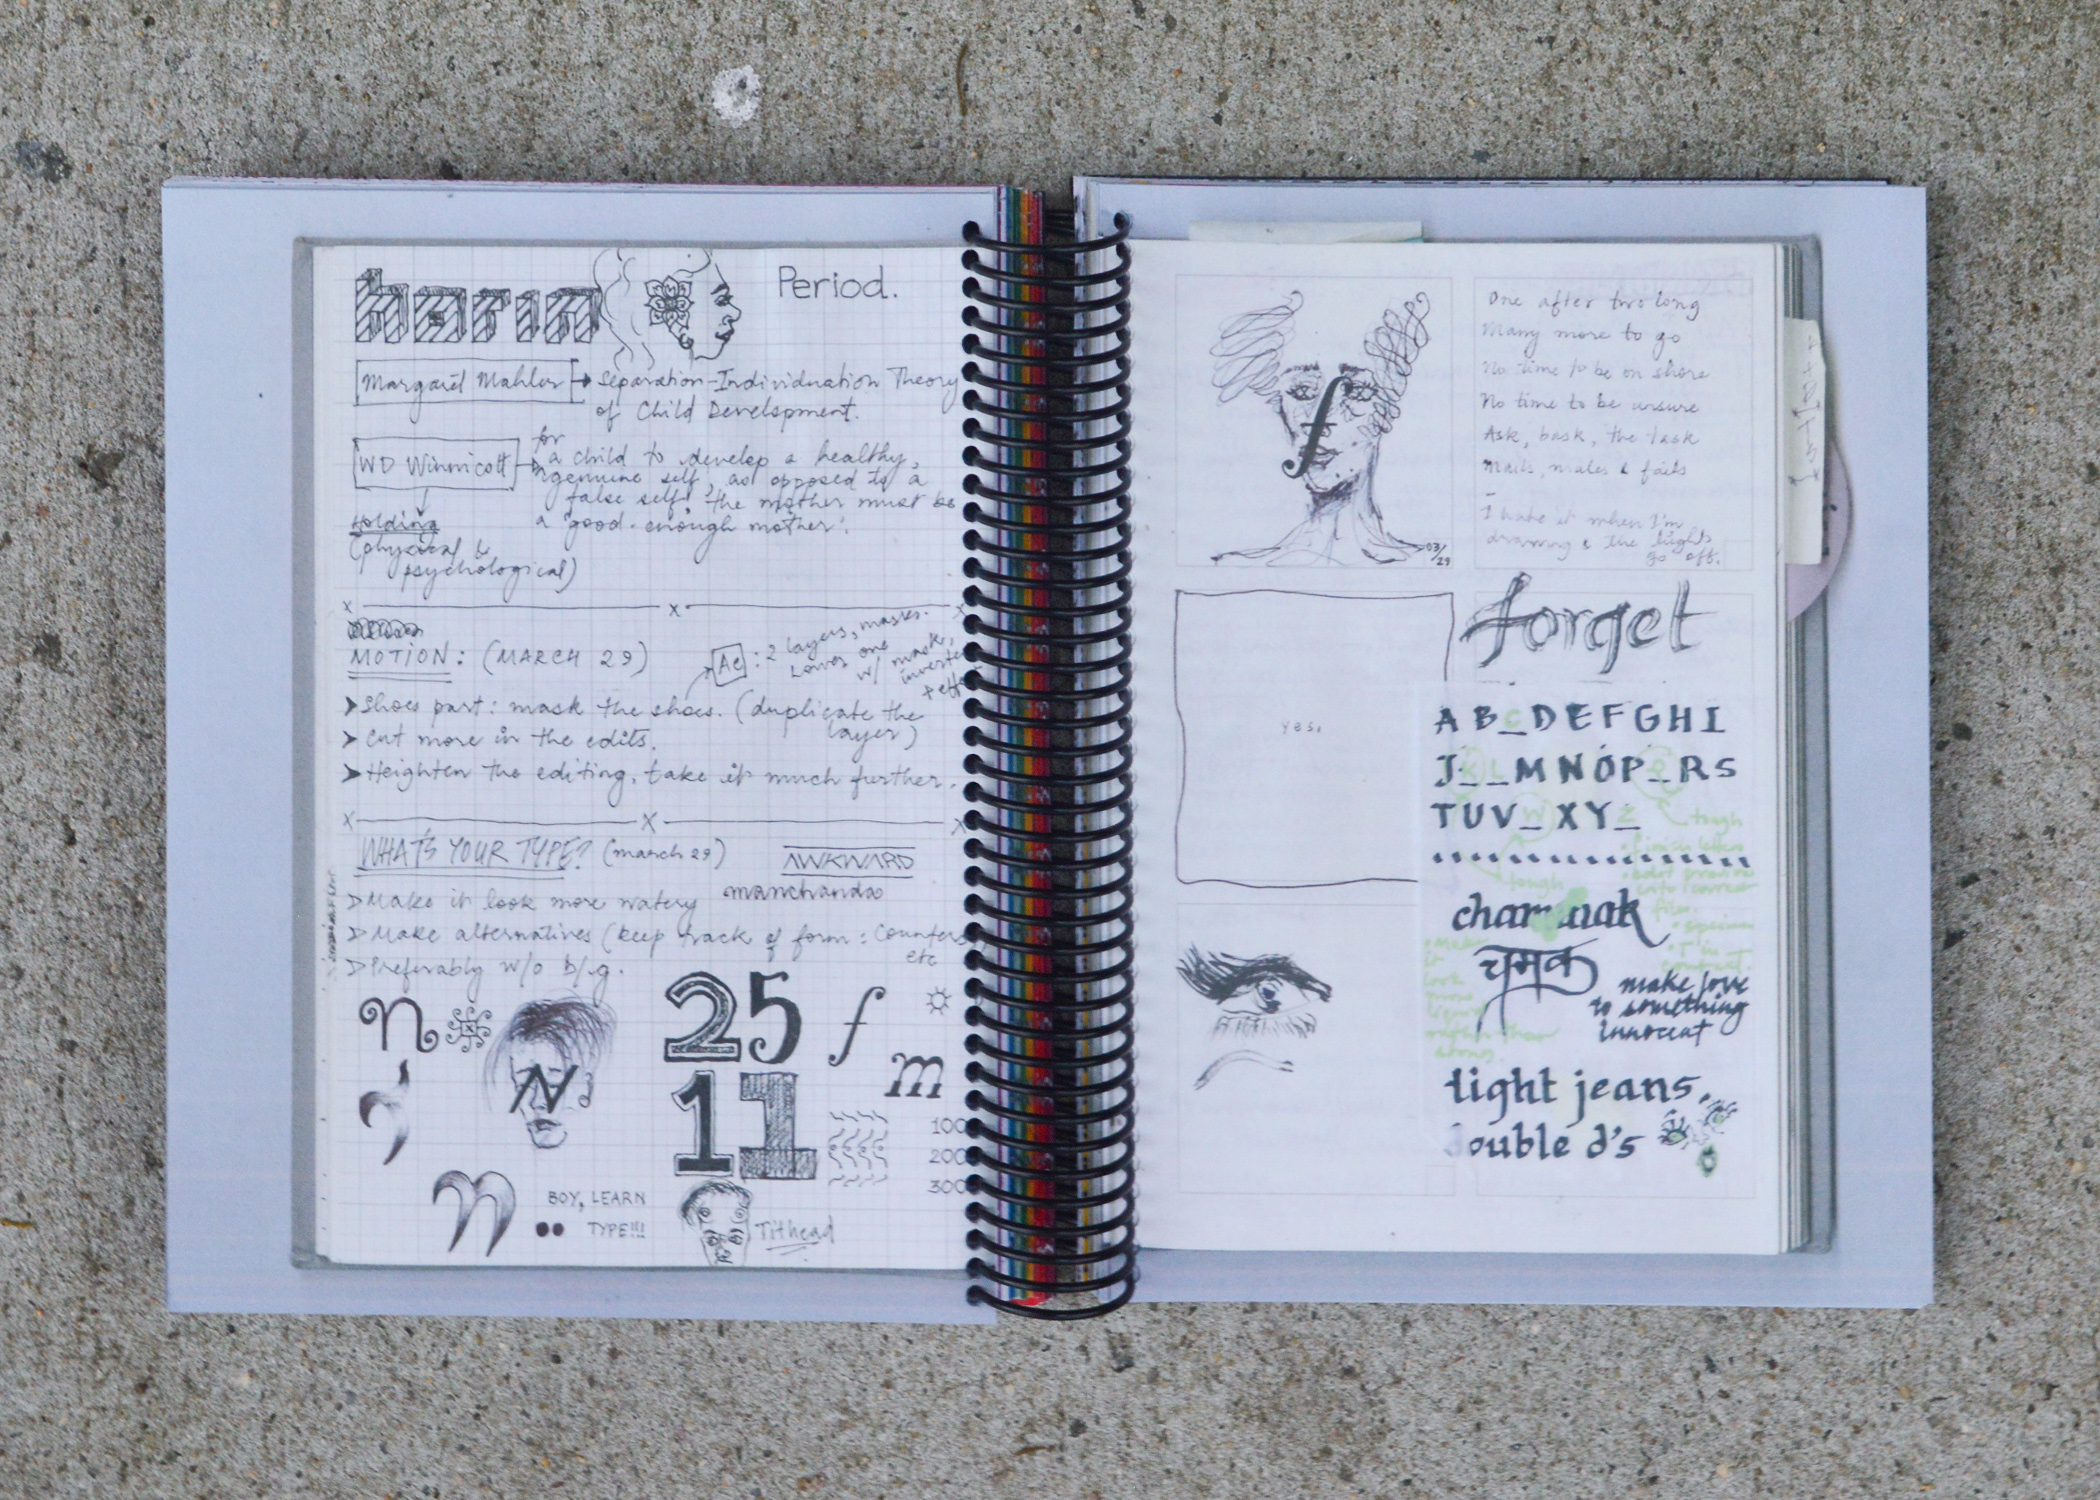 Period.
Margaret Mahler → Separation-Individuation Theory
of Child Development.
WD Winnicott → for
a child to develop a healthy,
genuine self, as opposed to a
false self, the mother must be
a "good-enough mother".
Holding
(physical &
psychological)
MOTION: (MARCH 29)
Ae : 2 layers, masks.
Lower one
w/ mask,
➤ Shoes part: mask the shoes. (duplicate the
layer)
➤ Cut more in the edits.
➤ Heighten the editing, take it much further.
WHAT'S YOUR TYPE? (march 29)
AWKWARD
manchanda
➤ Make it look more watery
➤ Make alternatives (keep track of form: counters
etc
➤ Preferably w/o b/g.
n
25
f
m
N
11
100
200
300
n
BOY, LEARN
TYPE!!!
Tithead
f
03/29
One after two long
Many more to go
No time to be on shore
No time to be unsure
Ask, bask, the task
Mails, males & fails
I hate it when I'm
drawing & the lights
go off.
yes.
forget
A B C D E F G H I
J K L M N O P Q R S
T U V W X Y Z
tough
finish letters
tough
चमक
make love
to something
innocent
tight jeans,
double d's